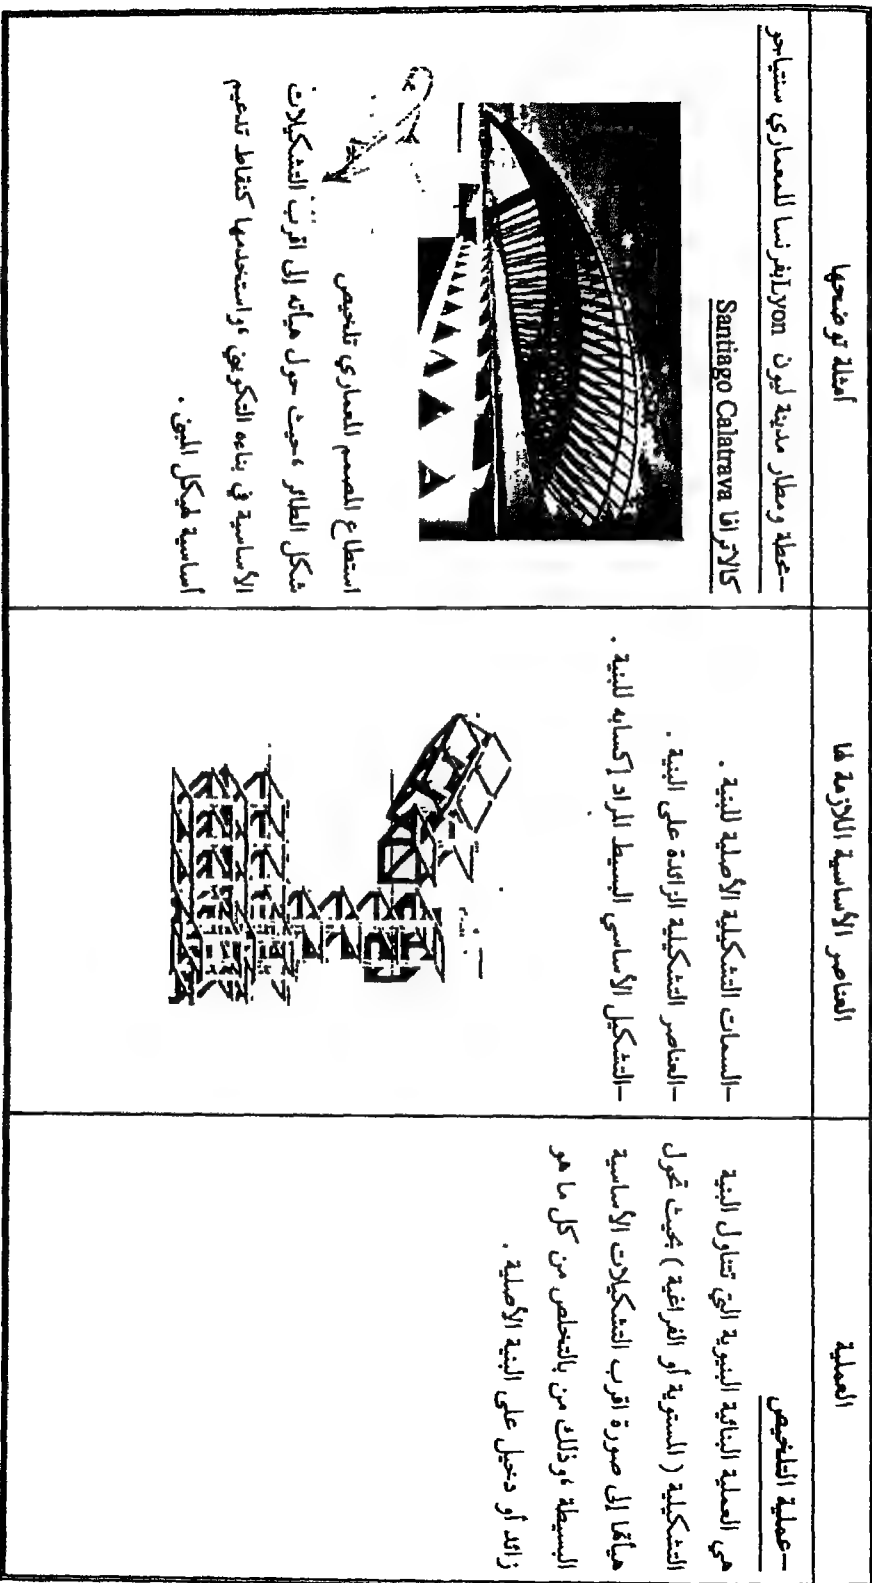 العملية
العناصر الأساسية اللازمة لها
أمثلة توضحها
-عملية التلخيص
هي العملية البنائية البنيوية التي تتناول البنية
التشكيلية ( المستوية أو الفراغية ) بحيث تحول
هيأتها إلى صورة اقرب التشكيلات الأساسية
البسيطة ،وذلك من بالتخلص من كل ما هو
زائد أو دخيل على البنية الأصلية .
-السمات التشكيلية الأصلية للبنية .
-العناصر التشكيلية الزائدة على البنية .
-التشكيل الأساسي البسيط المراد إكسابه للبنية .
-محطة ومطار مدينة ليون Lyon بفرنسا للمعماري سنتياجو
كالاترافا Santiago Calatrava
استطاع المصمم المعماري تلخيص
شكل الطائر ،حيث حول هيأته إلى اقرب التشكيلات
الأساسية في بناءه التكويني ،واستخدمها كنقاط تدعيم
أساسية لهيكل المبنى .